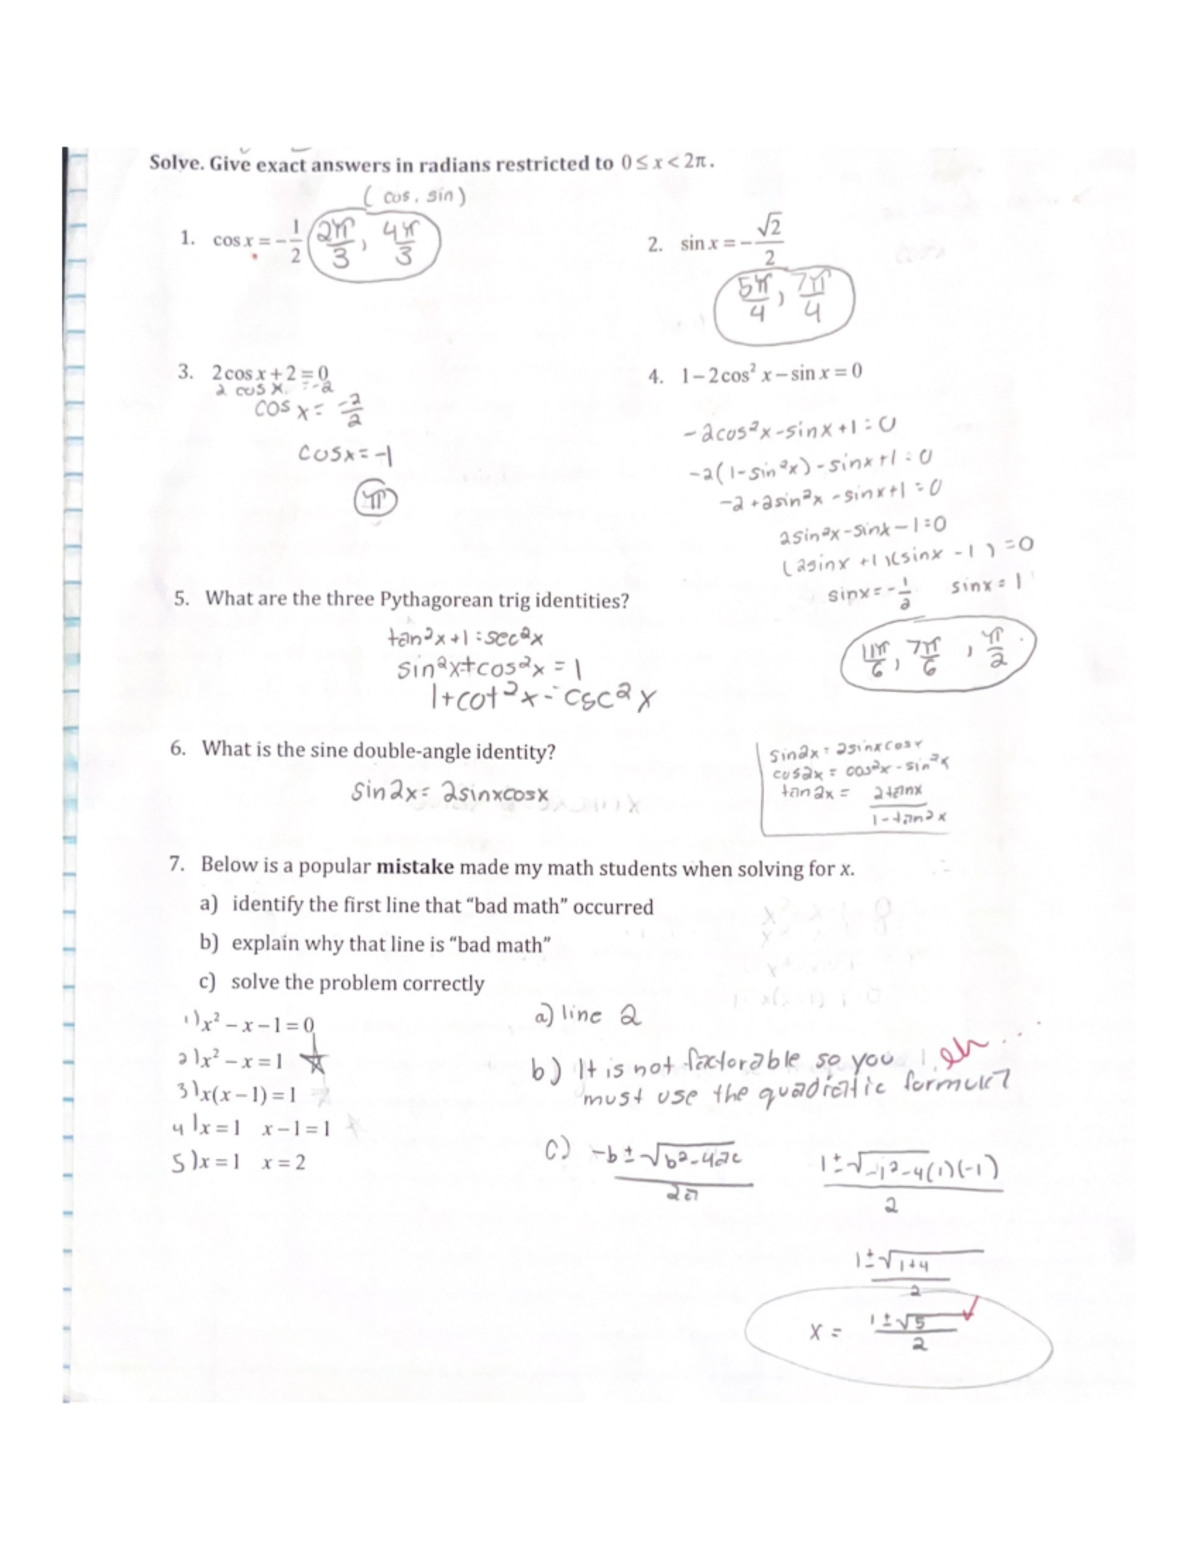 Solve. Give exact answers in radians restricted to 0 ≤ x < 2π.
(cos, sin)
1. cos x = -1/2 2π/3, 4π/3
2. sin x = -√2/2
5π/4, 7π/4
3. 2cos x + 2 = 0
2 cos x = -2
cos x = -2/2
cosx = -1
π
4. 1 - 2cos² x - sin x = 0
-2cos²x - sinx + 1 = 0
-2(1 - sin²x) - sinx + 1 = 0
-2 + 2sin²x - sinx + 1 = 0
2sin²x - sinx - 1 = 0
(2sinx + 1)(sinx - 1) = 0
sinx = -1/2 sinx = 1
11π/6, 7π/6, π/2
5. What are the three Pythagorean trig identities?
tan²x + 1 = sec²x
sin²x + cos²x = 1
1 + cot²x = csc²x
6. What is the sine double-angle identity?
sin2x = 2sinxcosx
sin2x = 2sinxcosx
cos2x = cos²x - sin²x
tan2x = 2tanx/1-tan²x
7. Below is a popular mistake made my math students when solving for x.
a) identify the first line that “bad math” occurred
b) explain why that line is “bad math”
c) solve the problem correctly
1) x² - x - 1 = 0
2) x² - x = 1
3) x(x - 1) = 1
4) x = 1 x - 1 = 1
5) x = 1 x = 2
a) line 2
b) It is not factorable so you
must use the quadratic formula
eh...
c) -b ± √b²-4ac/2a
1 ± √-1²-4(1)(-1)/2
1 ± √1+4/2
x = 1 ± √5/2